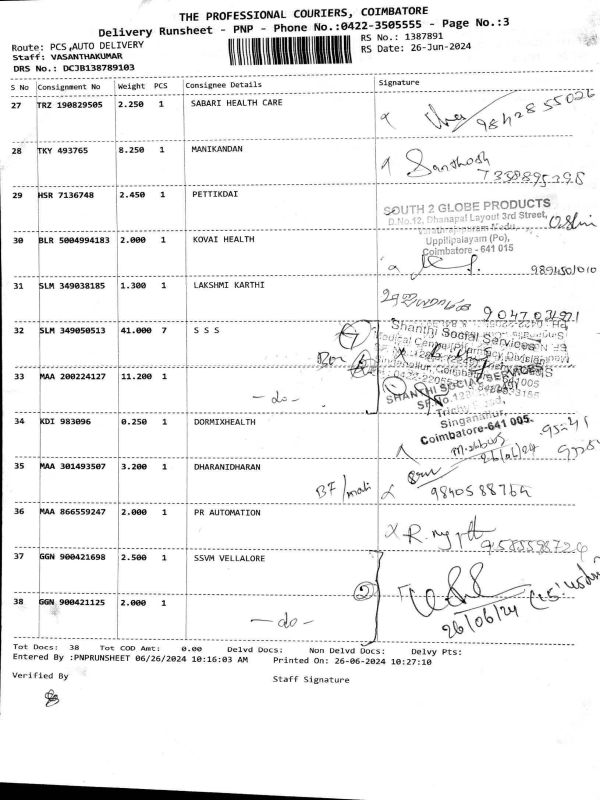 THE PROFESSIONAL COURIERS, COIMBATORE
Delivery Runsheet - PNP - Phone No.:0422-3505555 - Page No.:3
Route: PCS,AUTO DELIVERY
Staff: VASANTHAKUMAR
DRS No.: DCJB138789103
RS No.: 1387891
RS Date: 26-Jun-2024
S No Consignment No Weight PCS Consignee Details Signature
27 TRZ 190829505 2.250 1 SABARI HEALTH CARE
98428 55026
28 TKY 493765 8.250 1 MANIKANDAN
Santhosh
7338895298
29 HSR 7136748 2.450 1 PETTIKDAI
SOUTH 2 GLOBE PRODUCTS
D.No.12, Dhanapal Layout 3rd Street,
Uppilipalayam (Po),
Coimbatore - 641 015
30 BLR 5004994183 2.000 1 KOVAI HEALTH
31 SLM 349038185 1.300 1 LAKSHMI KARTHI
32 SLM 349050513 41.000 7 S S S
Box
Shanthi Social Services
33 MAA 200224127 11.200 1
- do -
SHANTHI SOCIAL SERVICES
Singanallur,
Coimbatore-641 005
34 KDI 983096 0.250 1 DORMIXHEALTH
26/06/24
35 MAA 301493507 3.200 1 DHARANIDHARAN
9840588764
36 MAA 866559247 2.000 1 PR AUTOMATION
37 GGN 900421698 2.500 1 SSVM VELLALORE
2
38 GGN 900421125 2.000 1
- do -
26/06/24
Tot Docs: 38 Tot COD Amt: 0.00 Delvd Docs: Non Delvd Docs: Delvy Pts:
Entered By :PNPRUNSHEET 06/26/2024 10:16:03 AM Printed On: 26-06-2024 10:27:10
Verified By
Staff Signature